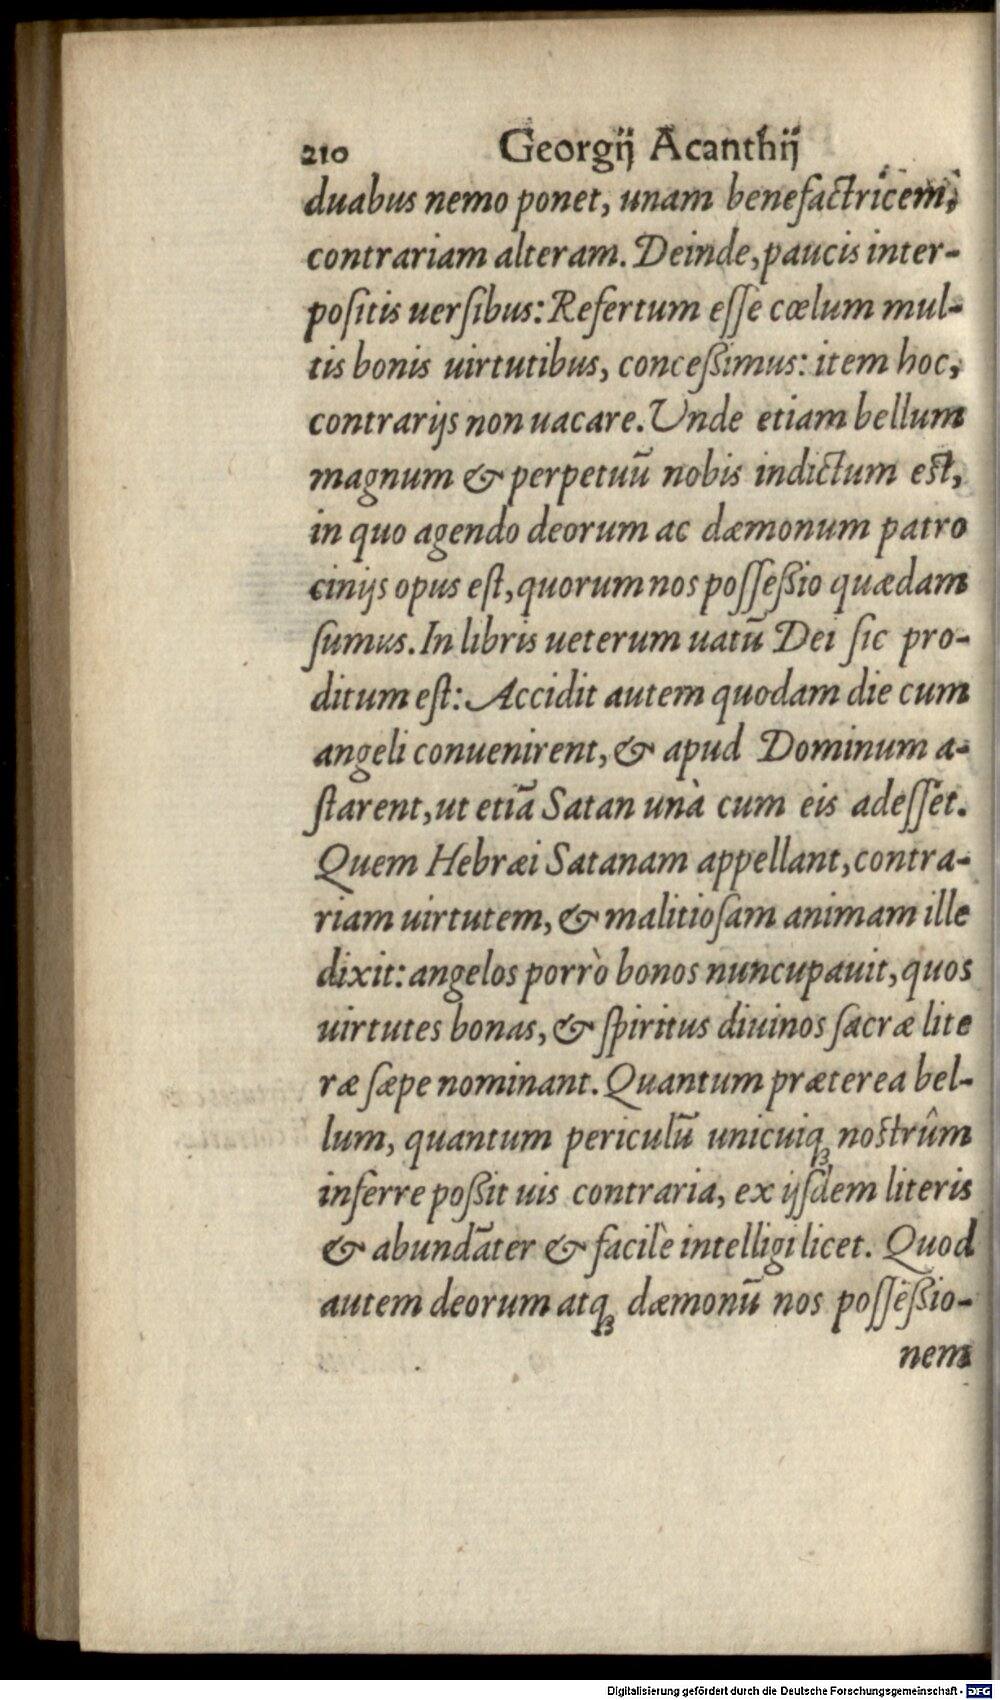 210 Georgij Acanthij
duabus nemo ponet, unam benefactricem,
contrariam alteram. Deinde, paucis inter-
poſitis uerſibus: Refertum eſſe cœlum mul-
tis bonis uirtutibus, conceßimus: item hoc,
contrarijs non uacare. Unde etiam bellum
magnum & perpetuũ nobis indictum est,
in quo agendo deorum ac dæmonum patro
cinijs opus eſt, quorum nos poſſeßio quædam
ſumus. In libris ueterum uatũ Dei ſic pro-
ditum eſt: Accidit autem quodam die cum
angeli conuenirent, & apud Dominum a-
ſtarent, ut etiã Satan unà cum eis adeſſet.
Quem Hebræi Satanam appellant, contra-
riam uirtutem, & malitioſam animam ille
dixit: angelos porrò bonos nuncupauit, quos
uirtutes bonas, & ſpiritus diuinos ſacræ lite
ræ ſæpe nominant. Quantum præterea bel-
lum, quantum periculũ unicuiqꝫ nostrûm
inferre poßit uis contraria, ex ijſdem literis
& abundãter & facilè intelligi licet. Quod
autem deorum atqꝫ dæmonũ nos poſſeßio-
nem
Digitalisierung gefördert durch die Deutsche Forschungsgemeinschaft - DFG